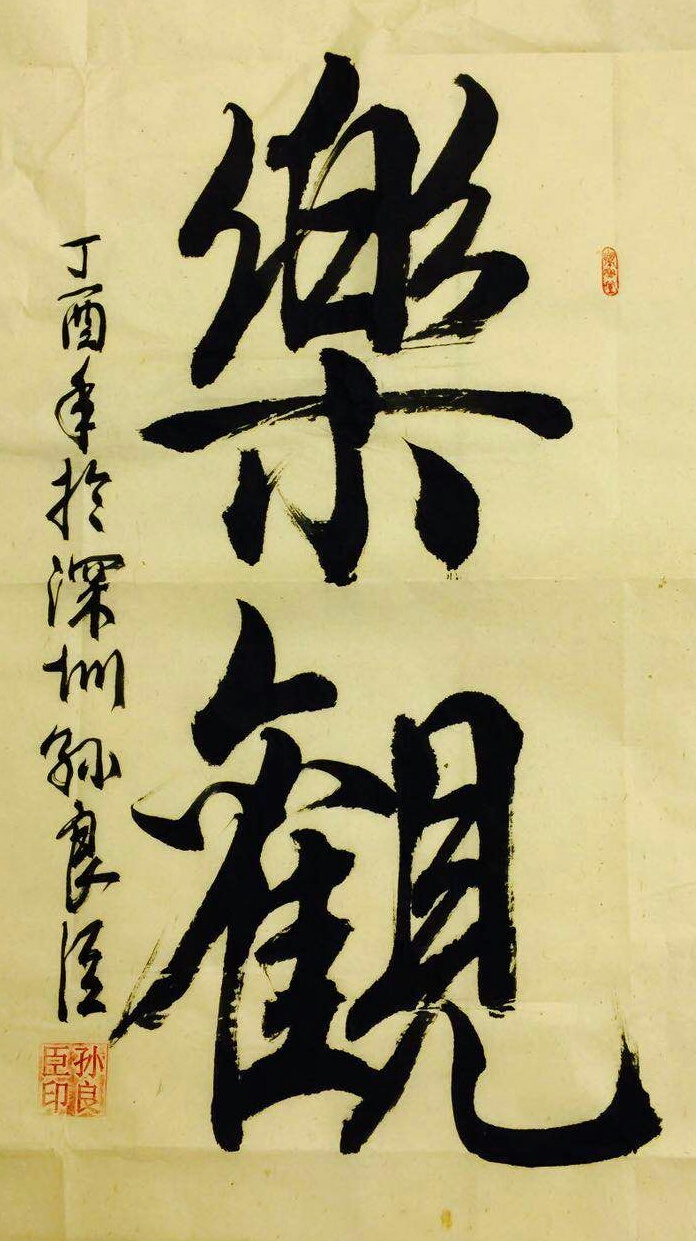 樂觀
丁酉年於深圳孙良臣
孙良臣印